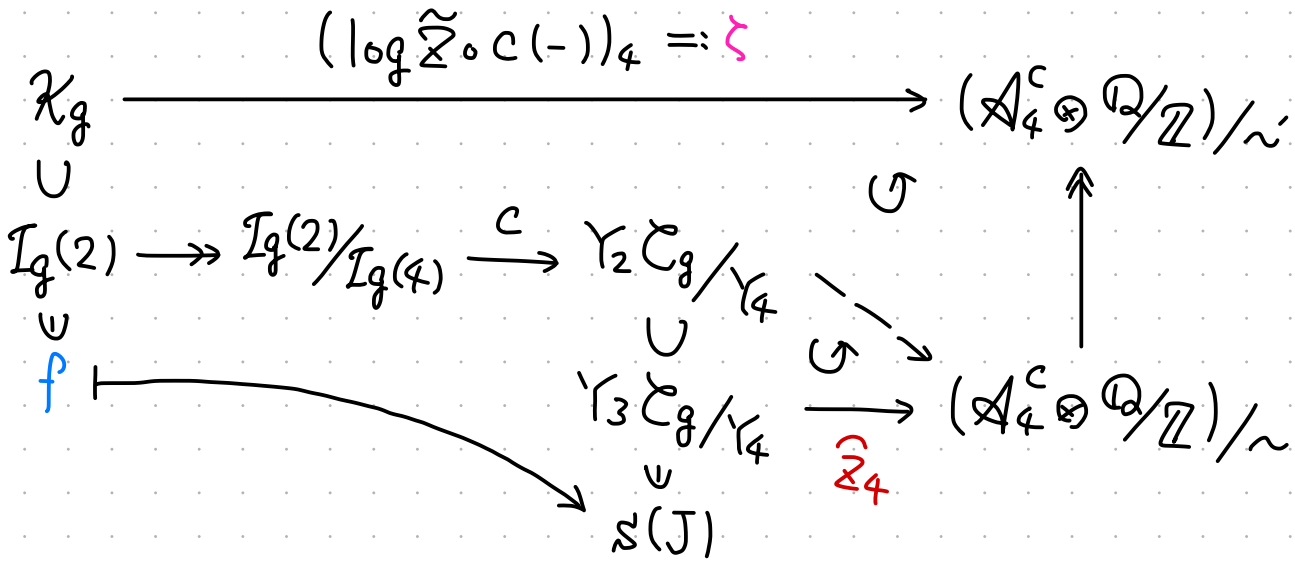 (log Z̃ ∘ c(−))₄ =: ζ
𝒦g ⟶ (𝒜₄ᶜ ⊗ ℚ/ℤ)/∼′
∪ ↺
ℐg(2) ↠ ℐg(2)/ℐg(4) ⟶ c Y₂𝒞g/Y₄
⋓ ∪ ↺
f ⟼ Y₃𝒞g/Y₄ ⟶ (𝒜₄ᶜ ⊗ ℚ/ℤ)/∼
Ẑ₄
s(J)